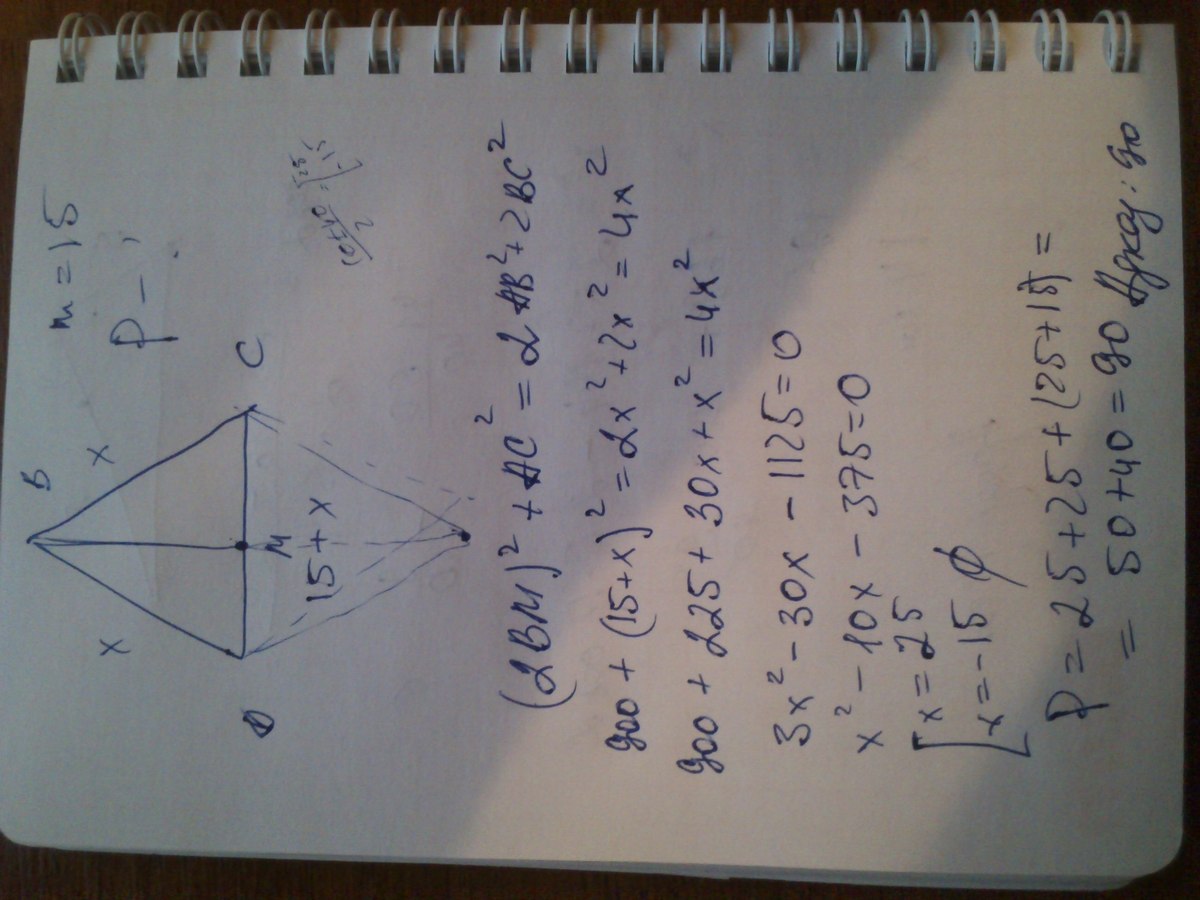 m = 15
P - ,
B
x
x
C
M
15 + x
(2BM)² + AC² = 2AB² + 2BC²
900 + (15+x)² = 2x² + 2x² = 4x²
900 + 225 + 30x + x² = 4x²
3x² - 30x - 1125 = 0
x² - 10x - 375 = 0
[ x = 25
x = -15 ∅
P = 25 + 25 + (25+15) =
= 50 + 40 = 90